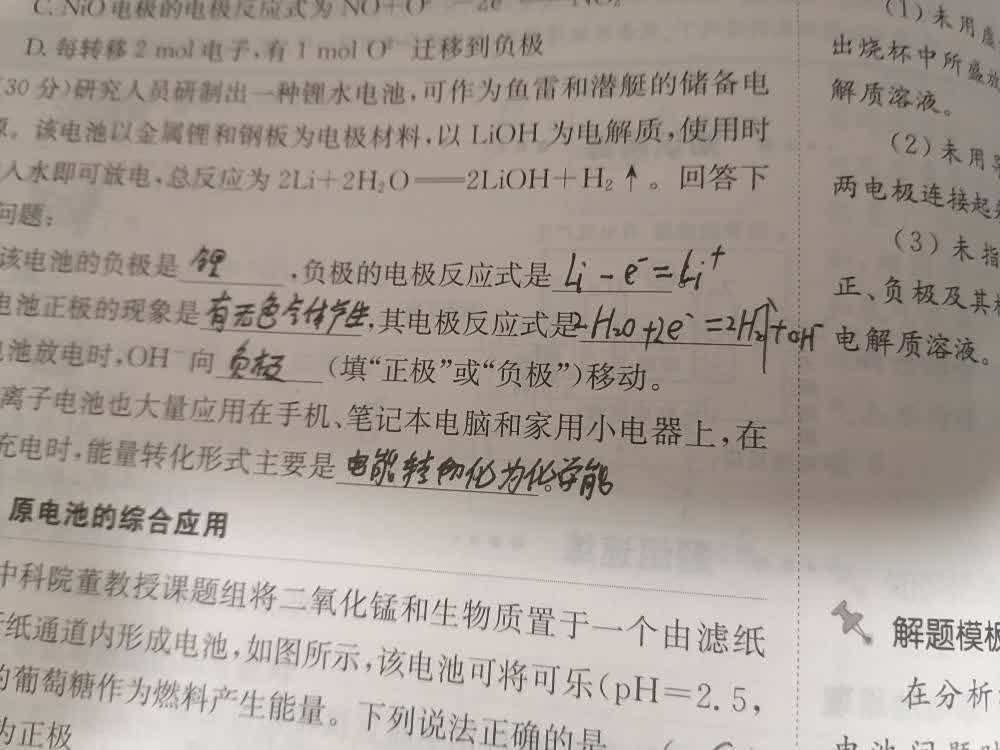 C. NiO电极的电极反应式为NO+O²⁻-2e⁻
D. 每转移2 mol电子,有1 mol O²⁻迁移到负极
(30分)研究人员研制出一种锂水电池,可作为鱼雷和潜艇的储备电
源。该电池以金属锂和钢板为电极材料,以LiOH为电解质,使用时
入水即可放电,总反应为2Li+2H₂O══2LiOH+H₂↑。回答下
问题:
该电池的负极是锂,负极的电极反应式是Li-e⁻=Li⁺
电池正极的现象是有无色气体产生,其电极反应式是2H₂O+2e⁻=2H₂↑+OH⁻
池放电时,OH⁻向负极(填“正极”或“负极”)移动。
离子电池也大量应用在手机、笔记本电脑和家用小电器上,在
充电时,能量转化形式主要是电能转化为化学能。
原电池的综合应用
中科院董教授课题组将二氧化锰和生物质置于一个由滤纸
纸通道内形成电池,如图所示,该电池可将可乐(pH=2.5,
的葡萄糖作为燃料产生能量。下列说法正确的是
为正极
(1)未用
出烧杯中所盛
解质溶液。
(2)未用
两电极连接起
(3)未指
正、负极及其
电解质溶液。
解题模板
在分析
电池问题时